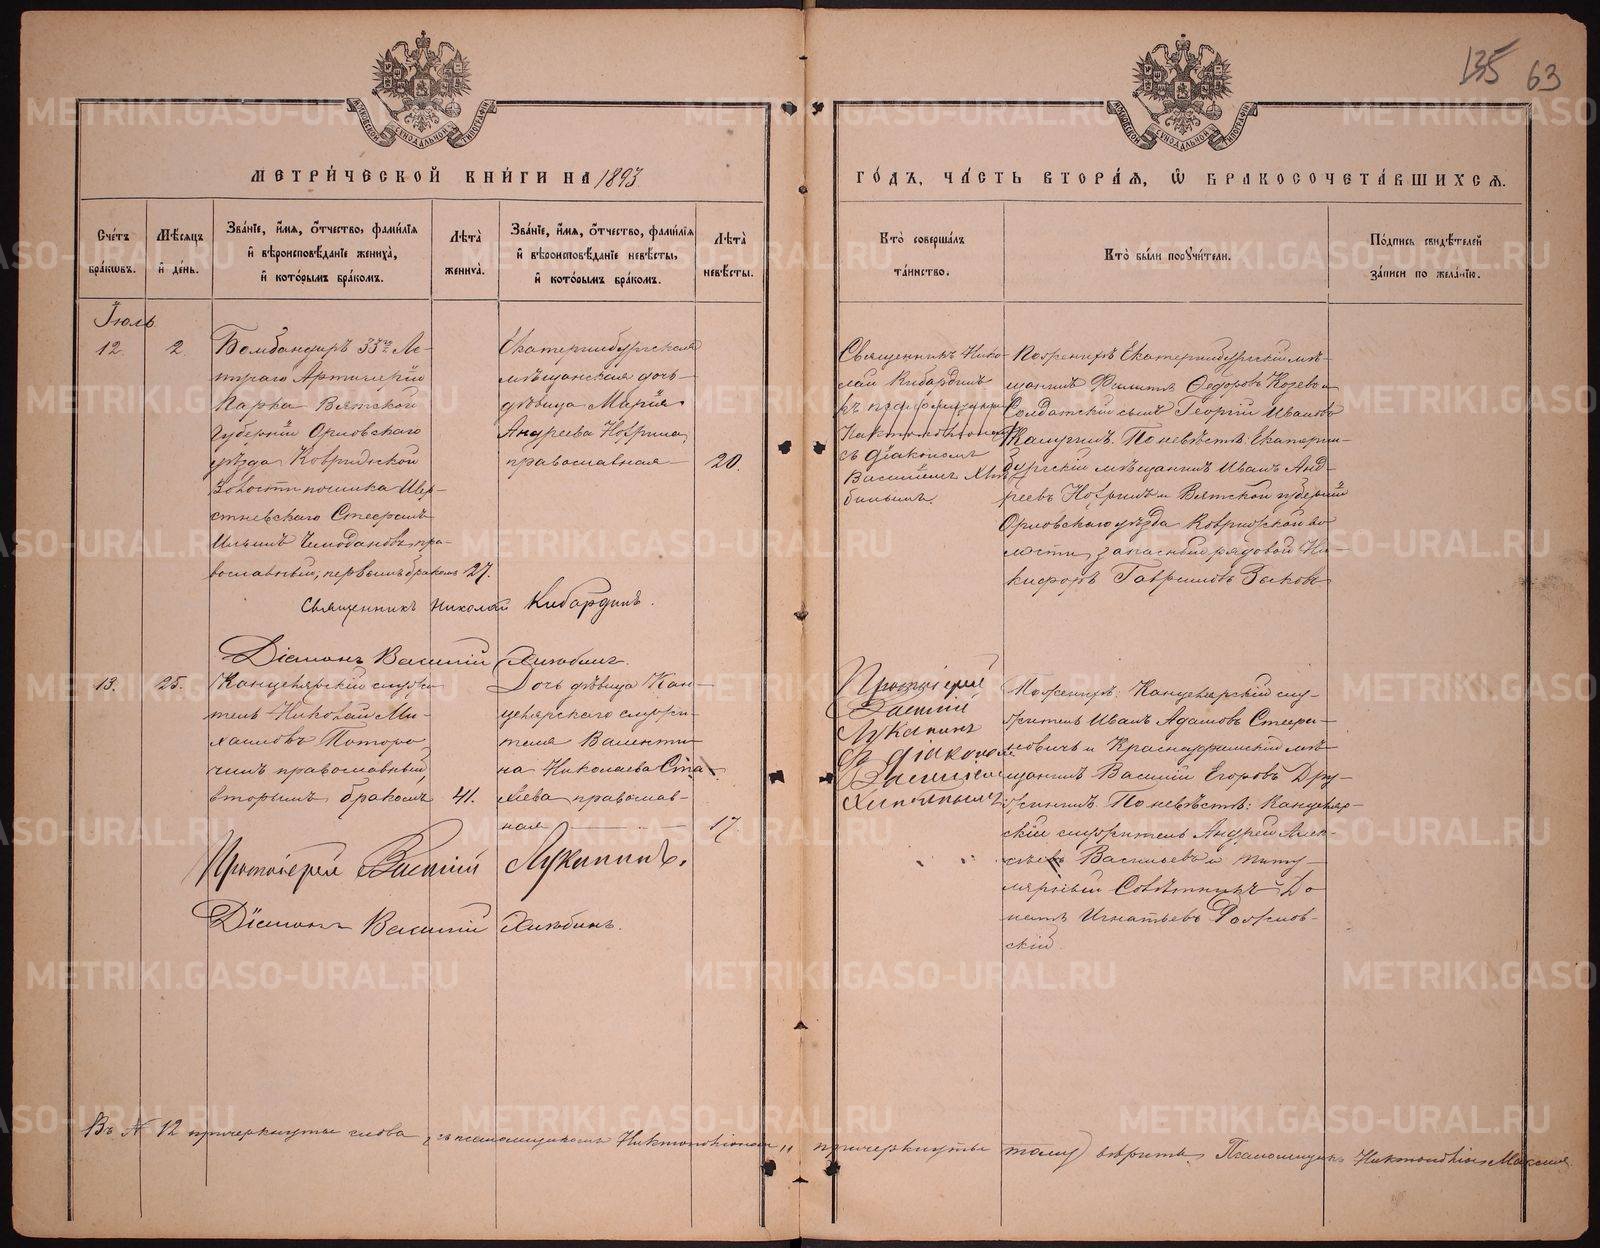 135 63
МОСКОВСКОЙ СѴНОДАЛЬНОЙ ТИПОГРАФІИ
МОСКОВСКОЙ СѴНОДАЛЬНОЙ ТИПОГРАФІИ
МЕТРИ́ЧЕСКОЙ КНИ́ГИ НА 1893
ГО́ДЪ, ЧА́СТЬ ВТОРА́Я, Ѡ БРАКОСОЧЕТА́ВШИХСЯ.
Сче́тъ бра́ковъ.
Мѣ́сяцъ и де́нь.
Зва́нїе, и́мя, о́тчество, фами́лїя и вѣроисповѣ́данїе жениха́, и кото́рымъ бра́комъ.
Лѣта̀ жениха̀.
Зва́нїе, и́мя, о́тчество, фами́лїя и вѣроисповѣ́данїе невѣ́сты, и кото́рымъ бра́комъ.
Лѣта̀ невѣ́сты.
Кто̀ соверша́лъ та́инство.
Кто̀ бы́ли порꙋчи́тели.
По́дпись свидѣ́телей за́писи по жела́нїю.
Іюль
12.
2.
Бомбандиръ 33го Ле-
тучаго Артилерій
Парка Вятской
Губерніи Орловскаго
уѣзда Ковридской
Волости починка Шер-
стневскаго Стефанъ
Ильинъ Чемодановъ, пра-
вославный, первымъ бракомъ
27.
Екатеринбургская
мѣщанская дочь
дѣвица Марія
Андреева
православная
20.
Священникъ Нико-
лай Кибардинъ
съ діакономъ
Василіемъ Хлѣ-
бинымъ.
По женихѣ Екатеринбургскій мѣ-
щанинъ Филиппъ Ѳедоровъ и
Солдатскій сынъ Георгій Ивановъ
Калугинъ. По невѣстѣ: Екатерин-
бургскій мѣщанинъ Иванъ Анд-
реевъ и Вятской губерніи
Орловскаго уѣзда Ковридской во-
лости, запасный рядовой Ни-
кифоръ Гавриловъ Зыковъ
Священникъ Николай Кибардинъ.
Діаконъ Василій Хлѣбинъ.
13.
25.
Канцелярскій служи-
тель Николай Ми-
хаиловъ Поторо-
чинъ православный
вторымъ бракомъ
41.
Дочь дѣвица Кан-
целярскаго служи-
теля Валенти-
на Николаева Ста-
хіева православ-
ная
17
Протоіерей
Василій
Луканинъ
съ діакономъ
Василіемъ
Хлѣбинымъ
По женихѣ: Канцелярскій слу-
житель Иванъ Адамовъ Стефа-
новичъ и Красноуфимскій мѣ-
щанинъ Василій Егоровъ Дру-
жининъ. По невѣстѣ: Канцеляр-
скій служитель Андрей Алек-
сѣевъ Васильевъ и титу-
лярный Совѣтникъ До-
натъ Игнатьевъ Рожнов-
скій.
Протоіерей Василій Луканинъ.
Діаконъ Василій Хлѣбинъ.
Въ № 12 причеркнуты слова „съ псаломщикомъ“ причеркнуты тому вѣрить. Псаломщикъ
METRIKI.GASO-URAL.RU